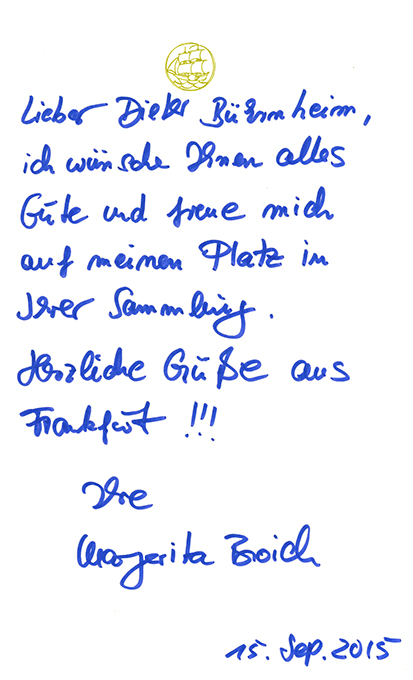 Lieber Dieter Bührnheim,
ich wünsche Ihnen alles
Gute und freue mich
auf meinen Platz in
Ihrer Sammlung.
Herzliche Grüße aus
Frankfurt !!!
Ihre
Margarita Broich
15. Sep. 2015